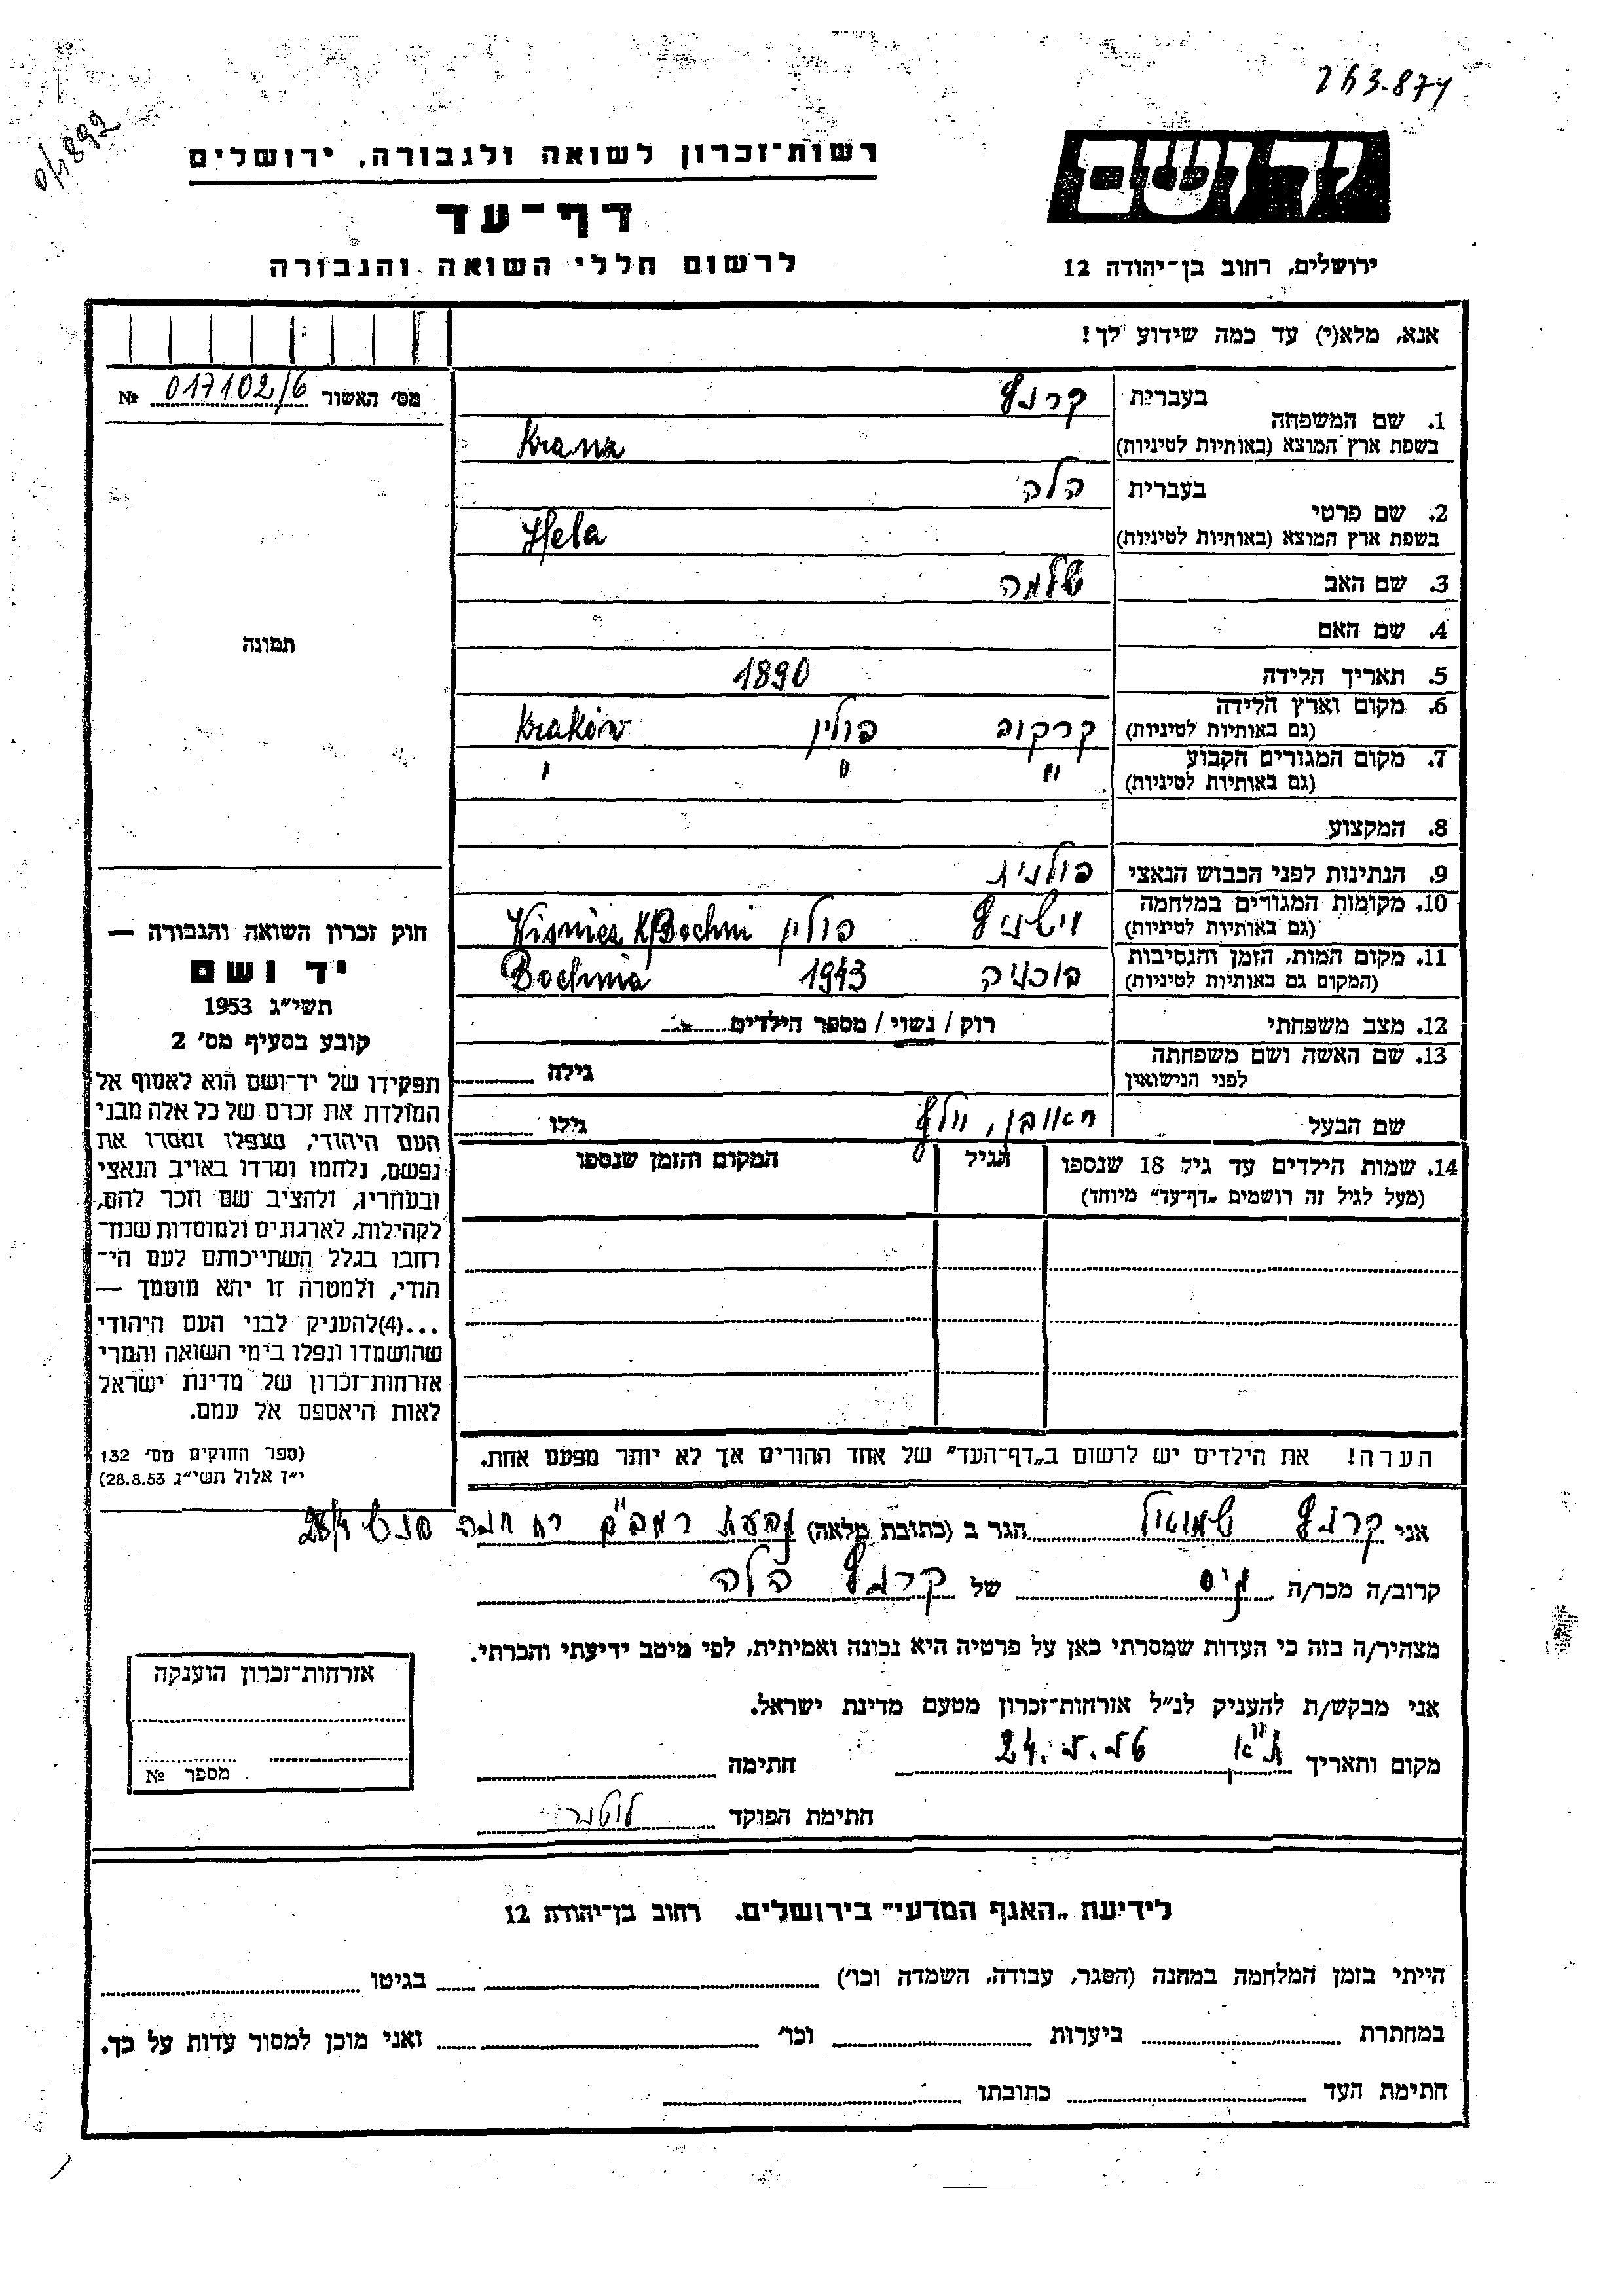 263-871
0/1892
יד ושם
רשות־זכרון לשואה ולגבורה, ירושלים
דף־עד
לרשום חללי השואה והגבורה
ירושלים, רחוב בן־יהודה 12
אנא, מלא(י) עד כמה שידוע לך!
מס׳ האשור 017102/6 №
תמונה
1. שם המשפחה
בעברית קרנץ
בשפת ארץ המוצא (באותיות לטיניות) Kranz
2. שם פרטי
בעברית הלה
בשפת ארץ המוצא (באותיות לטיניות) Hela
3. שם האב שלמה
4. שם האם
5. תאריך הלידה 1890
6. מקום וארץ הלידה
(גם באותיות לטיניות) קרקוב פולין Kraków
7. מקום המגורים הקבוע " " "
(גם באותיות לטיניות)
8. המקצוע
9. הנתינות לפני הכבוש הנאצי פולנית
10. מקומות המגורים במלחמה
(גם באותיות לטיניות) וישניץ פולין Wisnicz K/Bochni
11. מקום המות, הזמן והנסיבות
(המקום גם באותיות לטיניות) בוכניה 1943 Bochnia
12. מצב משפחתי רוק / נשוי / מספר הילדים
13. שם האשה ושם משפחתה
לפני הנישואין גילה
שם הבעל ראובן, וולף גילו
14. שמות הילדים עד גיל 18 שנספו
(מעל לגיל זה רושמים „דף־עד" מיוחד)
הגיל
המקום והזמן שנספו
חוק זכרון השואה והגבורה —
יד ושם
תשי״ג 1953
קובע בסעיף מס׳ 2
תפקידו של יד־ושם הוא לאסוף אל
המולדת את זכרם של כל אלה מבני
העם היהודי, שנפלו ומסרו את
נפשם, נלחמו ומרדו באויב הנאצי
ובעוזריו, ולהציב שם וזכר להם,
לקהילות, לארגונים ולמוסדות שנח־
רבו בגלל השתייכותם לעם הי־
הודי, ולמטרה זו יהא מוסמך —
...(4)להעניק לבני העם היהודי
שהושמדו ונפלו בימי השואה והמרי
אזרחות־זכרון של מדינת ישראל
לאות היאספם אל עמם.
(ספר החוקים מס׳ 132
י״ז אלול תשי״ג 28.8.53)
הערה! את הילדים יש לרשום ב„דף־העד" של אחד ההורים אך לא יותר מפעם אחת.
אני קרנץ שמואל הגר ב (כתובת מלאה) גבעת רמב"ם רח חנה סנש 28/4
קרוב/ה מכר/ה גיס של קרנץ הלה
מצהיר/ה בזה כי העדות שמסרתי כאן על פרטיה היא נכונה ואמיתית, לפי מיטב ידיעתי והכרתי.
אני מבקש/ת להעניק לנ״ל אזרחות־זכרון מטעם מדינת ישראל.
מקום ותאריך ת"א חתימה
חתימת הפוקד
אזרחות־זכרון הוענקה
מספר №
לידיעת „האגף המדעי" בירושלים. רחוב בן־יהודה 12
הייתי בזמן המלחמה במחנה (הסגר, עבודה, השמדה וכו׳) בגיטו
במחתרת ביערות וכו׳ ואני מוכן למסור עדות על כך.
חתימת העד כתובתו